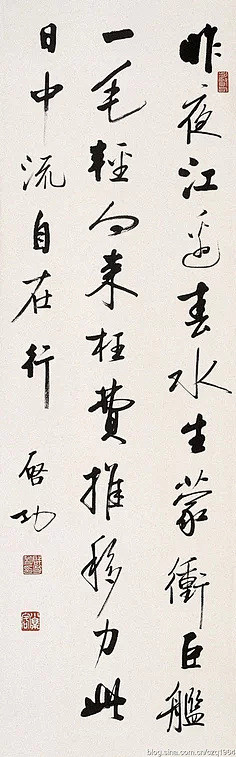 昨夜江边春水生蒙衝巨艦
一毛輕向来枉費推移力此
日中流自在行
啓功
blog.sina.com.cn/czq1964